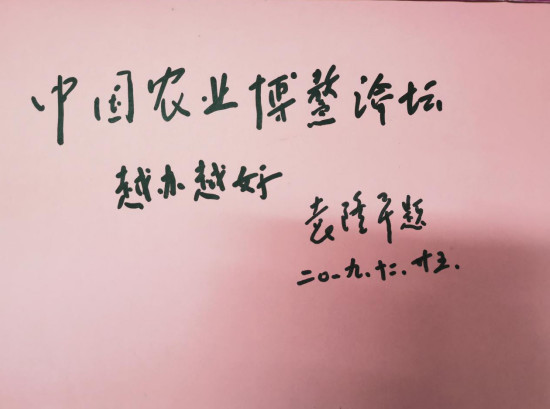 中国农业博鳌论坛
越办越好
袁隆平题
二〇一九.十二.廿五.